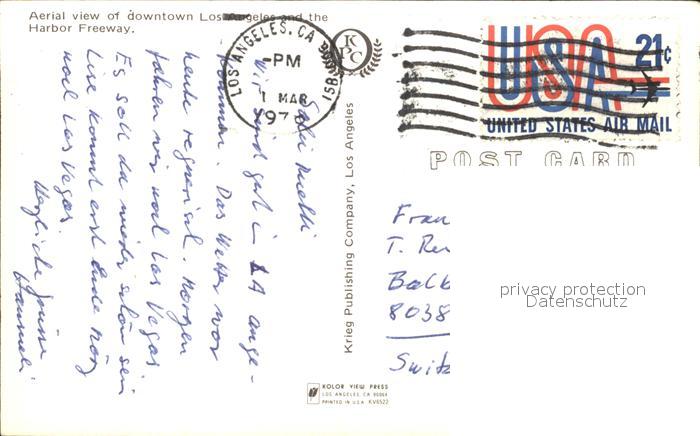 Aerial view of downtown Los Angeles and the
Harbor Freeway.
Salü Muetti
Wir sind gut in LA ange-
kommen. Das Wetter war
heute regnerisch. Morgen
fahren wir nach Las Vegas
Es soll da wieder schön sein
Line kommt erst Ende März
nach Las Vegas.
Herzliche Grüsse
Hanneli
Krieg Publishing Company, Los Angeles
KPC
LOS ANGELES, CA
-PM
1 MAR
197
KOLOR VIEW PRESS
LOS ANGELES, CA 90064
PRINTED IN U.S.A. KV6522
USA 21c
UNITED STATES AIR MAIL
POST CARD
Fran
T. Re
8038
Switz
privacy protection
Datenschutz